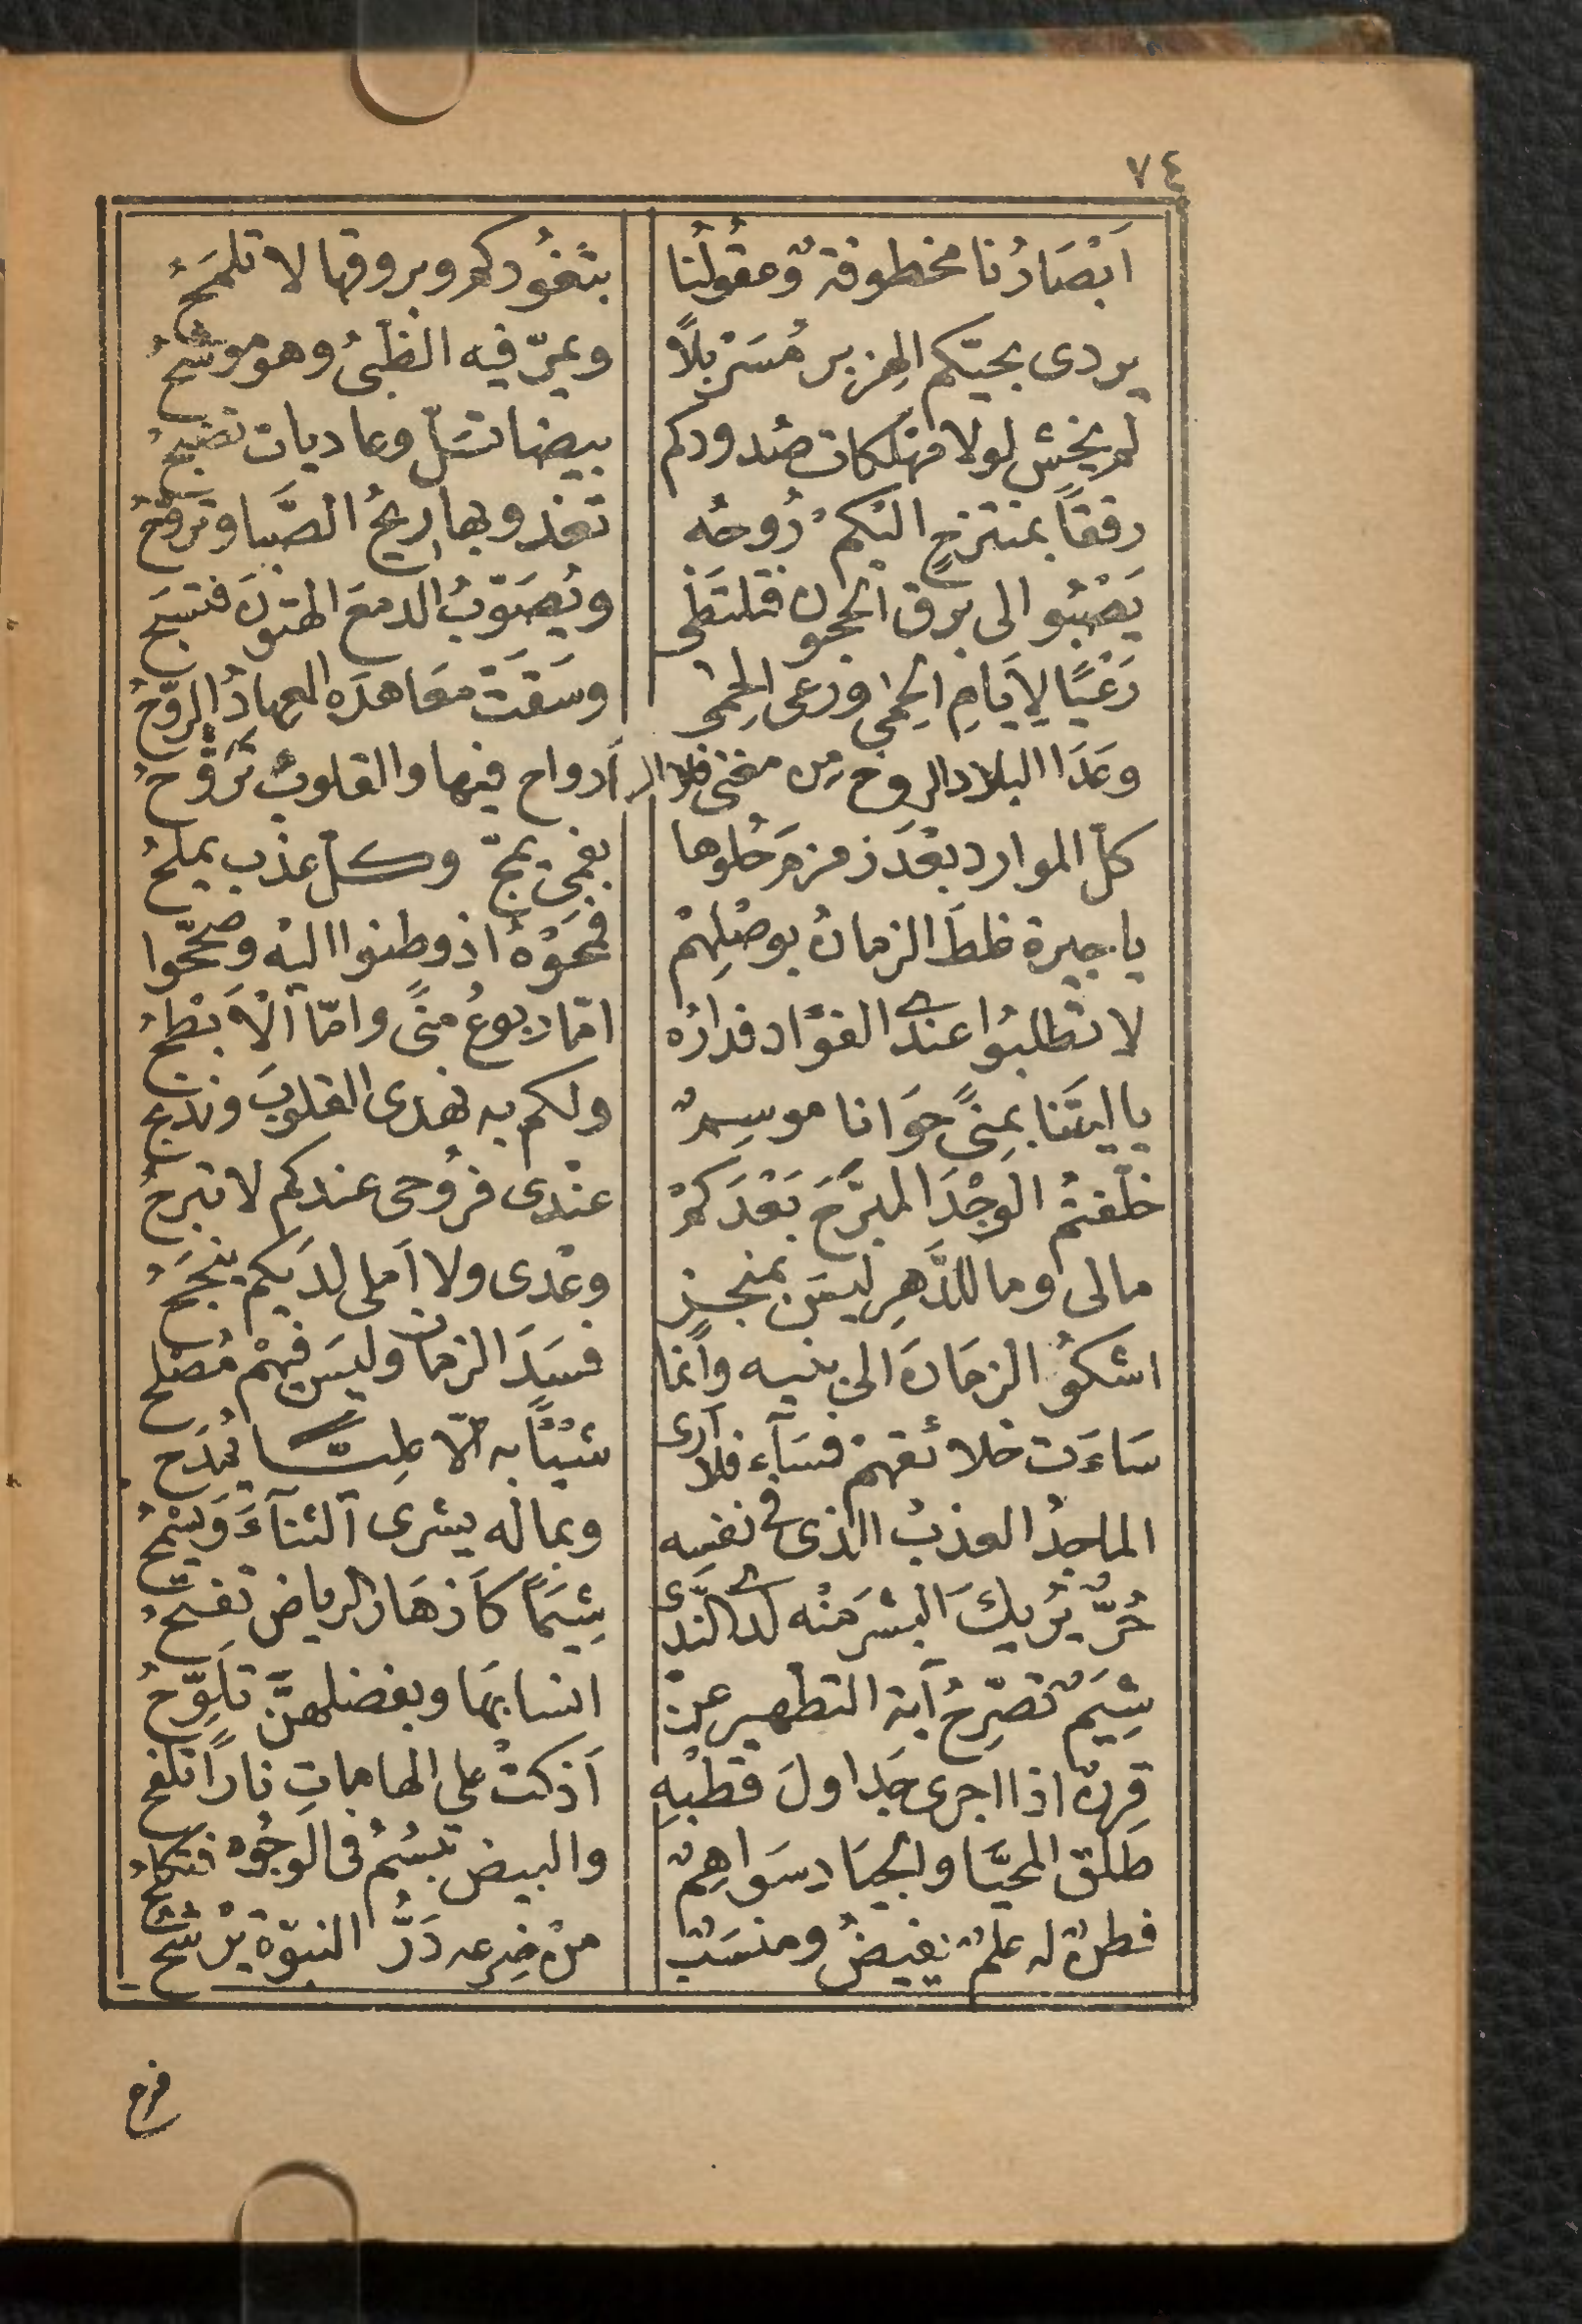 ٧٤
اَبْصَارُنا مخطوفةٌ وعقولُنا بثغُوركم وبروقها لا تلمَحُ
يردى بحيّكم الهزبر مُسَرْبلاً ويمرّ فيه الظبىُ وهو موشّحُ
لم يخش لولا مهلكات صُدودكم بيضا تسَلّ وعاديات تضبحُ
رفقاً بمنتزحٍ اليكمْ رُوحُه تغدو بها ريحُ الصَّبا وتروّحُ
يَصْبُو الى برق الحجون فتلتظى ويُصَوّبُ الدمعَ الهتونَ فتسبَح
رَعْيًا لِاَيامِ الحِمى ورعى الحِمى وسَقَتْ معَاهدَه العِهادُ الروّحُ
وغدَا البلاد الروح مِن مغنى فلا الـ أرواح فيها والقلوبُ تَرَوّحُ
كلّ الموارد بعْدَ زمزمَ حُلوها بفمى يمجّ وكلّ عذب يملحُ
يا جيرة غلطَ الزمانُ بوصْلِهمْ فمَحَوْهُ اذ وطنوا اليه وصحّحوا
لا تطلبُوا عندى الفوًاد فدارُه امّا ربوعُ منًى وامّا الْاَبطحُ
يا ليتَنا بمِنًى حوَانا موسِمٌ ولكم به نهدى القلوبَ ونذبح
خلّفتمُ الوَجْدَ المبَرّحَ بَعْدَكمْ عنْدى فرُوحى عندكم لا تبرحُ
مالى وما للدّهرِ ليسَ بمنجزٍ وعْدى ولا اَملى لدَيكم ينجَحُ
اشكُو الزمَانَ الى بنيه وانّما فسَدَ الزمان وليسَ فيهمْ مُصْلح
سَاءَت خلائقهمْ فسَآء فلا أرى شيْئاً به الّا عليًّا يُمدَح
الماجدُ العذبُ الذى فى نفسِه وبماله يشرى الثنآءَ وَيسْمحُ
حُرٌّ يُريكَ البشرَ منْه لدى النَّدَى شِيَماً كاَزهَار الرياض تفتّحُ
شِيَمٌ تصَرّحُ آية التطهير عنْ انسابهَا وبفضلهنّ تلَوّحُ
قِرنٌ اذا اجرى جَداولَ قضبِهِ اَذكتْ على الهاماتِ نارًا تلفح
طلق المحيَّا والجيَاد سَواهِمٌ والبيض تبسُمُ فى الوجُوه فتكلحُ
فطِنٌ له علمٌ يفيضُ ومنسَبٌ منْ ضِرعه دَرُّ النبوّة يَرْشحُ
فرع